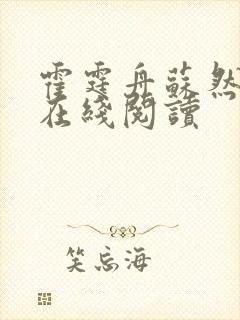 霍霆舟蘇然
在綫閱讀
笑忘海